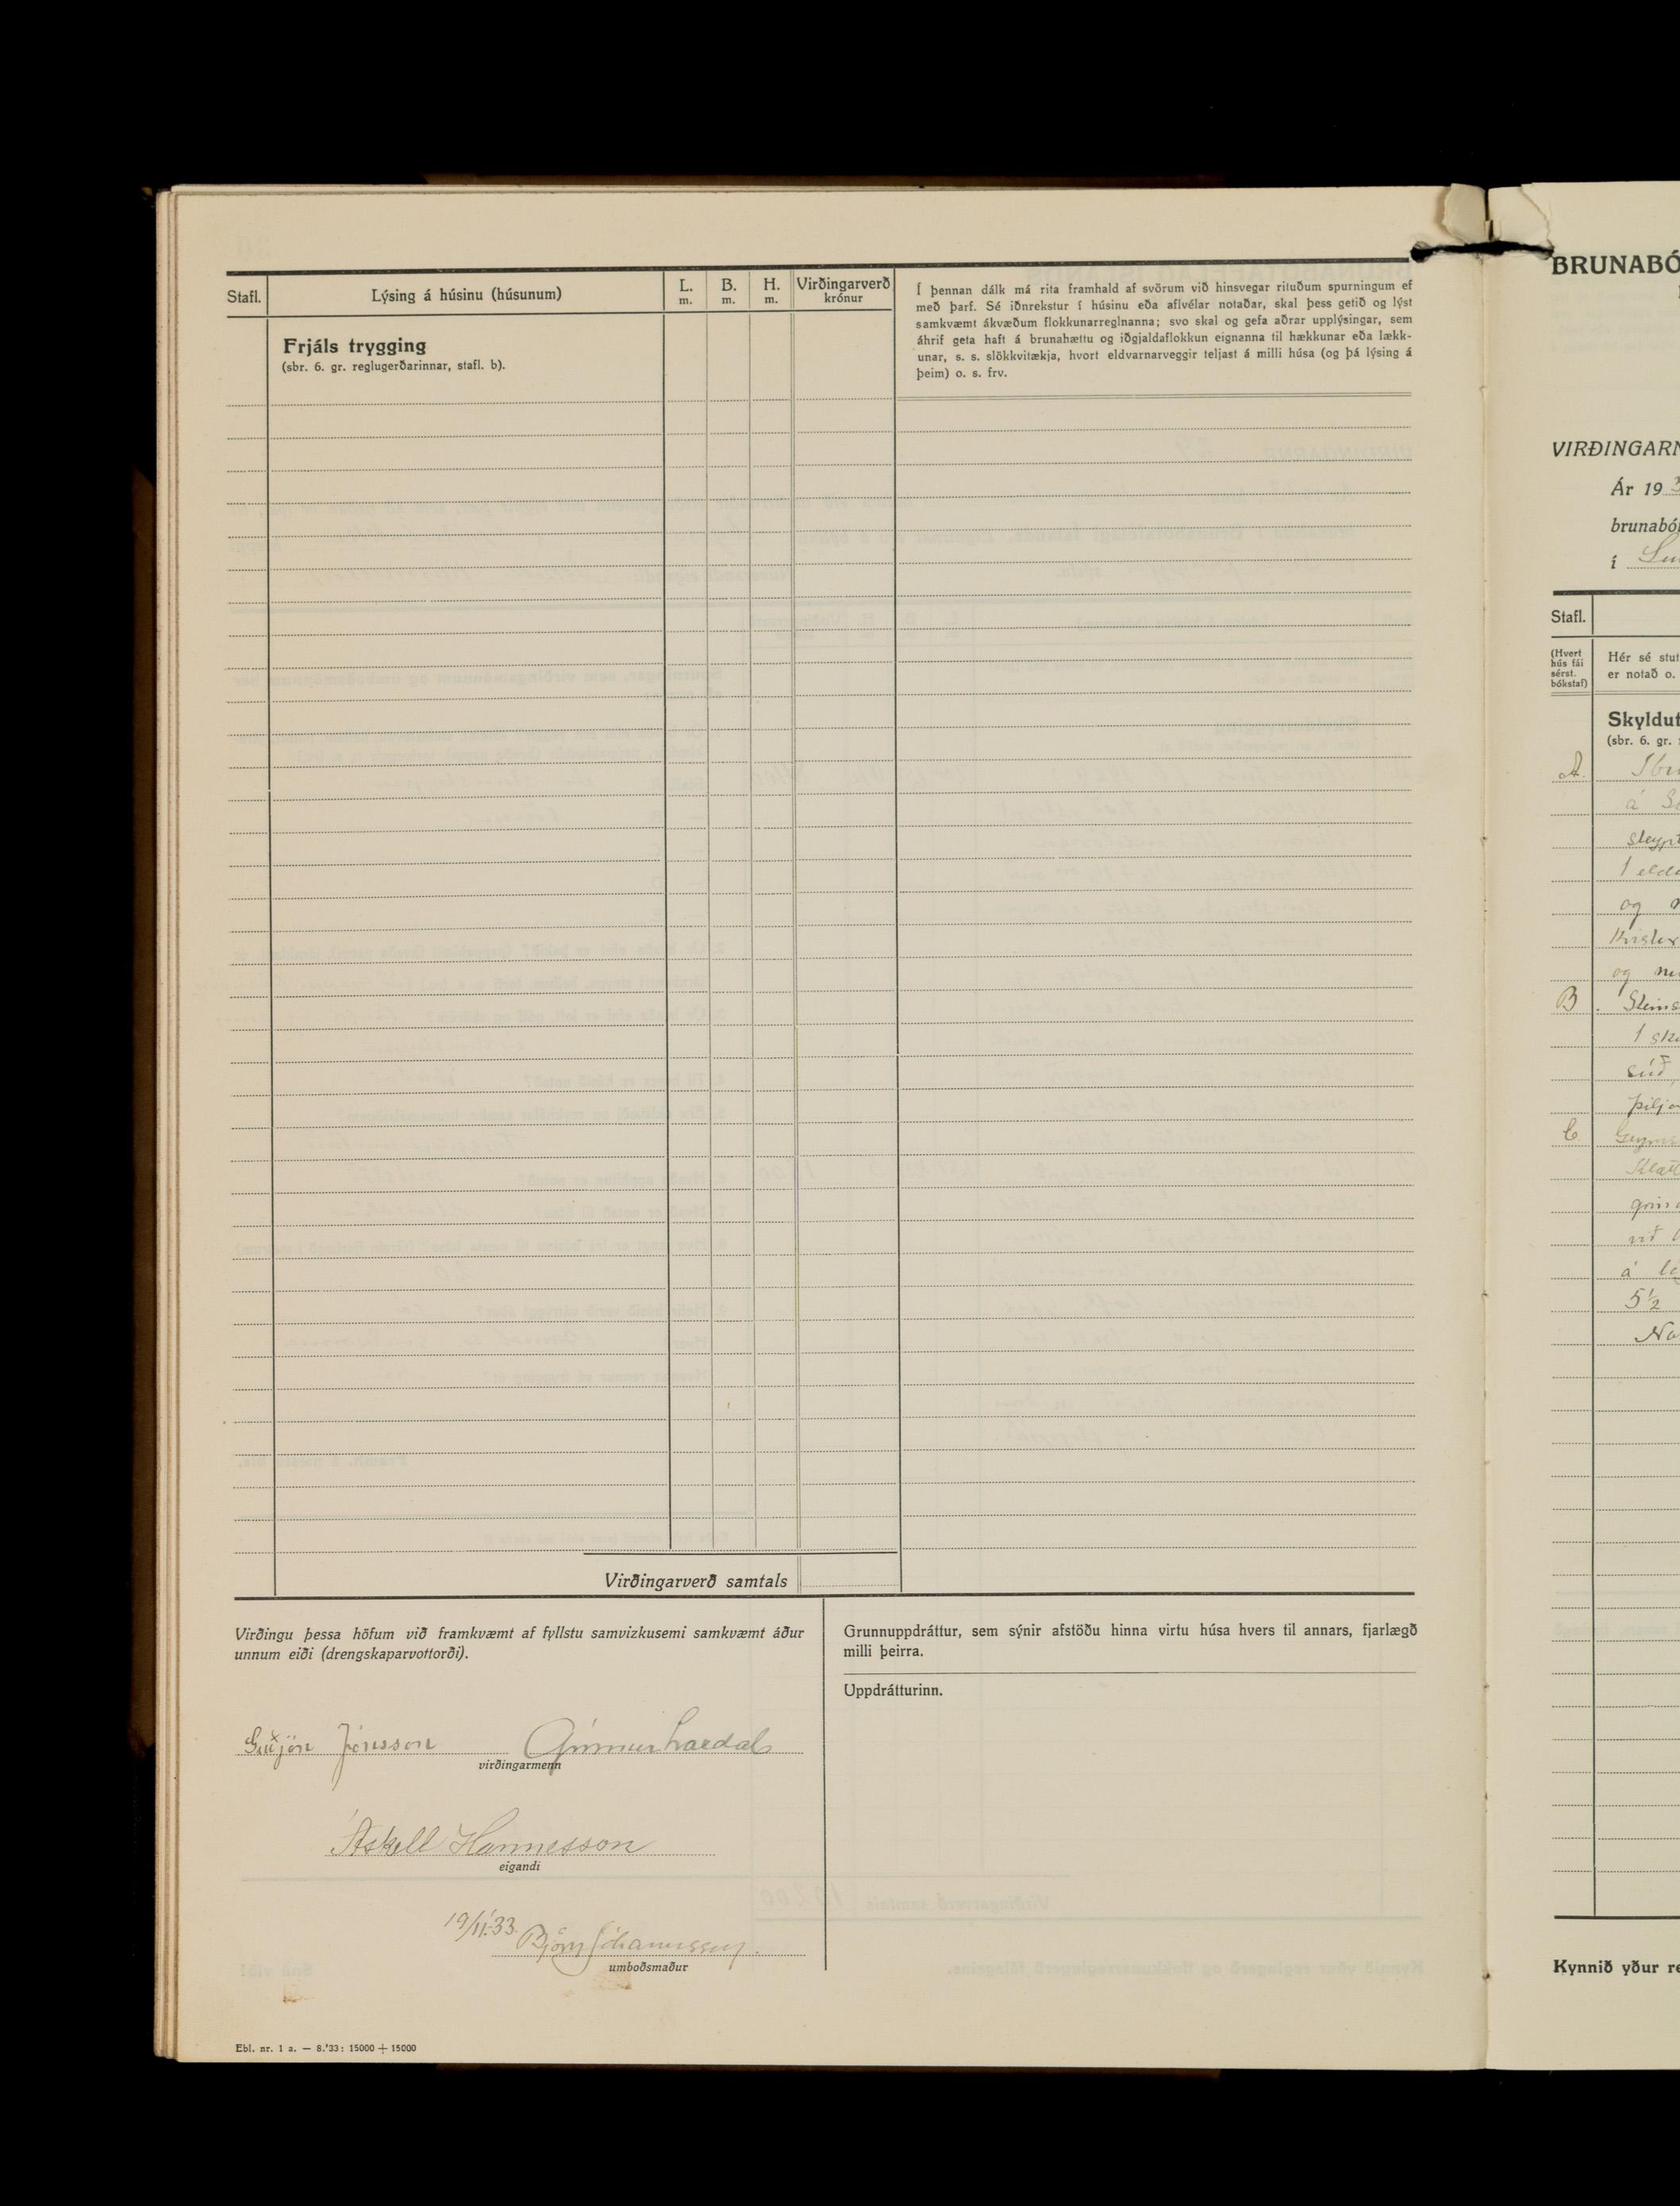 Stafl.
Lýsing á húsinu (húsunum)
L.
m.
B.
m.
H.
m.
Virðingarverð
krónur
Í þennan dálk má rita framhald af svörum við hinsvegar rituðum spurningum ef
með þarf. Sé iðnrekstur í húsinu eða aflvélar notaðar, skal þess getið og lýst
samkvæmt ákvæðum flokkunarreglnanna; svo skal og gefa aðrar upplýsingar, sem
áhrif geta haft á brunahættu og iðgjaldaflokkun eignanna til hækkunar eða lækk-
unar, s. s. slökkvitækja, hvort eldvarnarveggir teljast á milli húsa (og þá lýsing á
þeim) o. s. frv.
Frjáls trygging
(sbr. 6. gr. reglugerðarinnar, stafl. b).
Virðingarverð samtals
Virðingu þessa höfum við framkvæmt af fyllstu samvizkusemi samkvæmt áður
unnum eiði (drengskaparvottorði).
Guðjón Jónsson Grímur Laxdal
virðingarmenn
Áskell Hannesson
eigandi
19/11.33. Björn Jóhannsson.
umboðsmaður
Grunnuppdráttur, sem sýnir afstöðu hinna virtu húsa hvers til annars, fjarlægð
milli þeirra.
Uppdrátturinn.
Ebl. nr. 1 a. — 8.'33: 15000 + 15000
BRUNABÓ
VIRÐINGARN
Ár 19 3
brunabó
í
Stafl.
(Hvert
hús fái
sérst.
bókstaf)
Hér sé stut
er notað o.
Skyldut
(sbr. 6. gr.
A.
á
steypt
1 elda
og
og
B.
Steins
1
súð,
þilja
C.
við
á
5½
No
Kynnið yður re